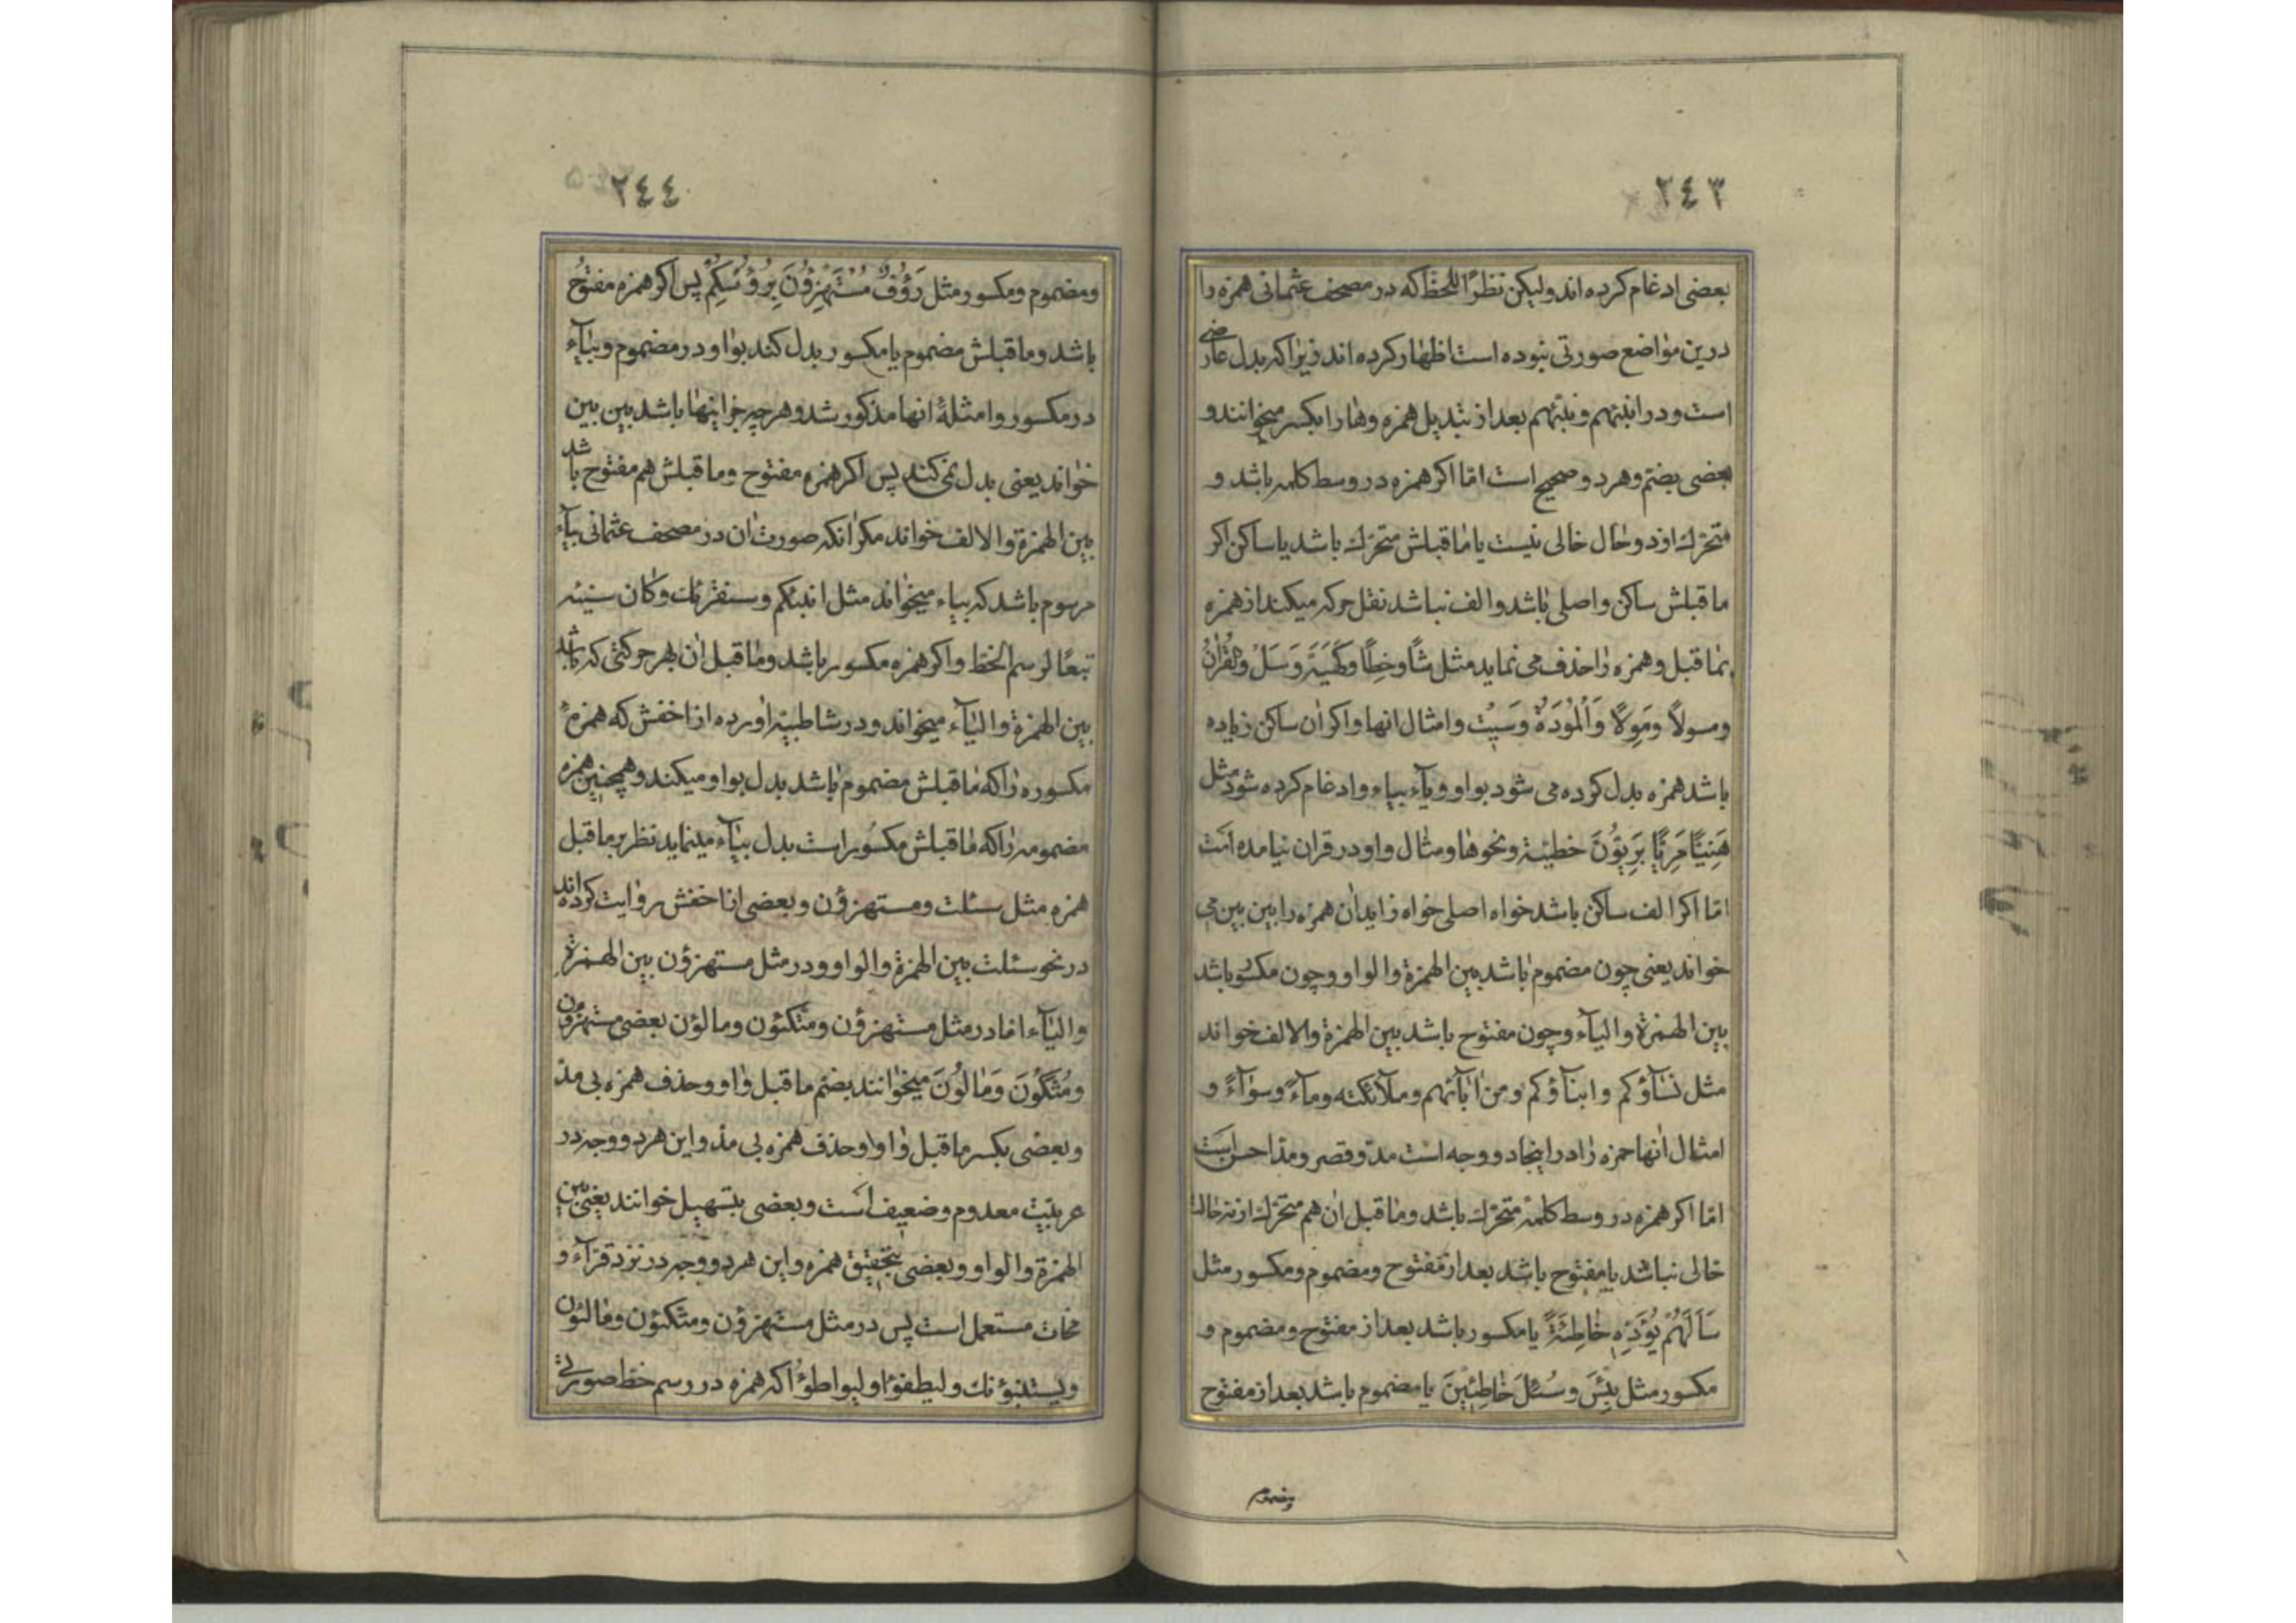 ٢٤٣
بعضی ادغام کرده اند ولیکن نظرًا للخط که در مصحف عثمانی همزه را
درین مواضع صورتی نبوده است اظهار کرده اند زیرا که بدل عارضی
است و در انبئهم ونبئهم بعد از تبدیل همزه وها را بکسر میخوانند و
بعضی بضم وهر دو صحیح است امّا اکر همزه در وسط کلمه باشد و
متحرک از دو حال خالی نیست یا ماقبلش متحرک باشد یا ساکن اکر
ماقبلش ساکن واصلی باشد والف نباشد نقل حرکه میکند از همزه
بماقبل وهمزه را حذف می نماید مثل شًا وخِطًا وکَهَیَة وَسَلْ وقُرٰانُ
ومسولًا ومَوِلًا وَالْمُوْدَةُ وَسِیَت وامثال انها واکر ان ساکن زیاده
باشد همزه بدل کرده می شود بواو ویآء بیاء وادغام کرده شود مثل
هَنِیًّا مَرِیًّا بَرِیّوُنَ خطیّة ونحوها ومثال واو در قران نیامده است
امّا اکر الف ساکن باشد خواه اصلی خواه زاید ان همزه را بین بین می
خواند یعنی چون مضموم باشد بین الهمزة والواو وچون مکسور باشد
بین الهمزة والیآء وچون مفتوح باشد بین الهمزة والالف خواند
مثل نسآؤکم وابنآؤکم ومن اٰبآئهم وملآئکته ومآءً وسوآءً و
امثال انها حمزه را در اینجا دو وجه است مدّ وقصر ومدّ احسن است
امّا اکر همزه در وسط کلمه متحرک باشد وماقبل ان هم متحرک از نه حال
خالی نباشد یا مفتوح باشد بعد از مفتوح ومضموم ومکسور مثل
سَاَلَهُمْ یُؤَدِّهِ خٰاطِئَةً یا مکسور باشد بعد از مفتوح ومضموم و
مکسور مثل بِئسَ وسُئِلَ خٰاطِئِینَ یا مضموم باشد بعد از مفتوح
ومضموم
٢٤٤
ومضموم ومکسور مثل رَؤُفٌ مُسْتَهْزِؤُنَ بِرُؤُسِکُمْ پس اکر همزه مفتوح
باشد وماقبلش مضموم یا مکسور بدل کند بواو در مضموم وبیآء
در مکسور وامثلهٔ انها مذکور شد وهر چه جز اینها باشد بین بین
خواند یعنی بدل نمی کند پس اکر همزه مفتوح وماقبلش هم مفتوح باشد
بین الهمزة والالف خواند مکر انکه صورت ان در مصحف عثمانی بیآء
مرسوم باشد که بیاء میخواند مثل انبئکم وسنقرئک وکان سیئه
تبعًا لرسم الخط واکر همزه مکسور باشد وماقبل ان بهر حرکتی که باشد
بین الهمزة والیآء میخواند ودر شاطبیه اورده از اخفش که همزهٔ
مکسوره را که ماقبلش مضموم باشد بدل بواو میکند وهمچنین همزه
مضمومه را که ماقبلش مکسور است بدل بیآء مینماید نظر بر ماقبل
همزه مثل سئلت ومستهزؤن وبعضی از اخفش روایت کرده اند
در نحو سئلت بین الهمزة والواو ودر مثل مستهزؤن بین الهمزة
والیآء امّا در مثل مستهزؤن ومتّکئون ومالؤن بعضی مستهزون
ومُتَّکُوْنَ وَمٰالُوُنَ میخوانند بضم ماقبل واو وحذف همزه بی مدّ
وبعضی بکسر ماقبل واو وحذف همزه بی مدّ واین هر دو وجه در
عربیت معدوم وضعیف است وبعضی بتسهیل خوانند یعنی بین
الهمزة والواو وبعضی بتحقیق همزه واین هر دو وجه در نزد قرآء و
نحات مستعمل است پس در مثل مستهزؤن ومتکئون ومالئون
ویستنبؤنک ولیطفؤا ولیواطؤا که همزه در رسم خط صورتی